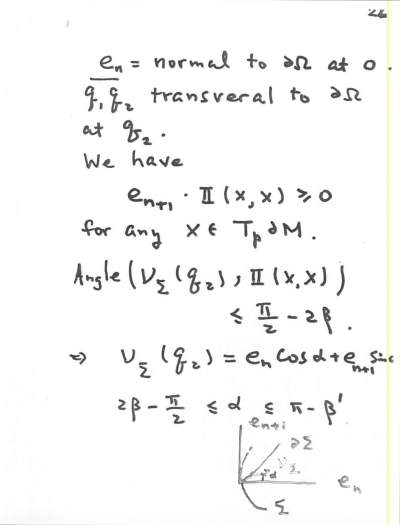 26
e_n = normal to ∂Ω at 0.
q, q_2 transveral to ∂Ω
at q_2.
We have
e_{n+1} · II(x, x) ≥ 0
for any x ∈ T_p ∂M.
Angle(ν_Σ(q_2), II(x, x))
≤ π/2 - 2β.
⇒ ν_Σ(q_2) = e_n cos α + e_{n+1} sin
2β - π/2 ≤ α ≤ π - β'
e_{n+1}
∂Σ
ν_Σ
α
e_n
Σ